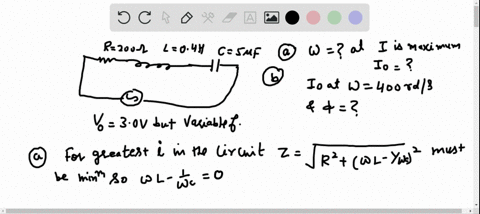 R=200Ω L=0.4H C=5μF
V₀ = 3.0V but Variable f.
(a) ω = ? at I is maximum
I₀ = ?
(b)
I₀ at ω = 400 rd/s
& ϕ = ?
(a) For greatest i in the circuit Z = √(R² + (ωL - 1/ωc)²) must
be minᵐ so ωL - 1/ωc = 0